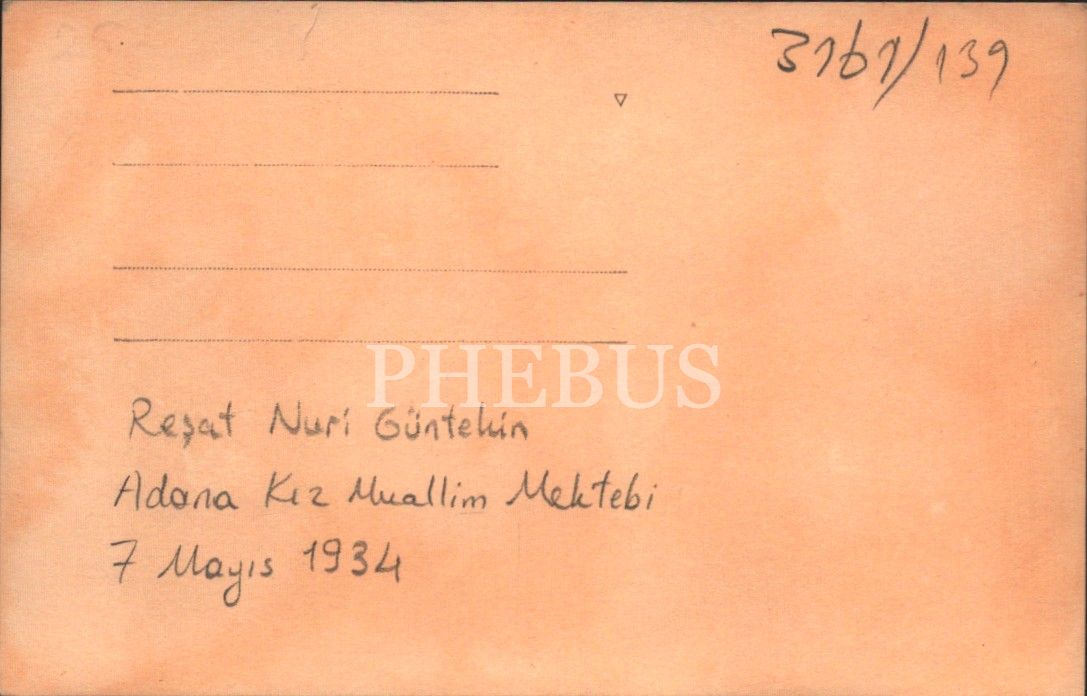 3161/139
PHEBUS
Reşat Nuri Güntekin
Adana Kız Muallim Mektebi
7 Mayıs 1934